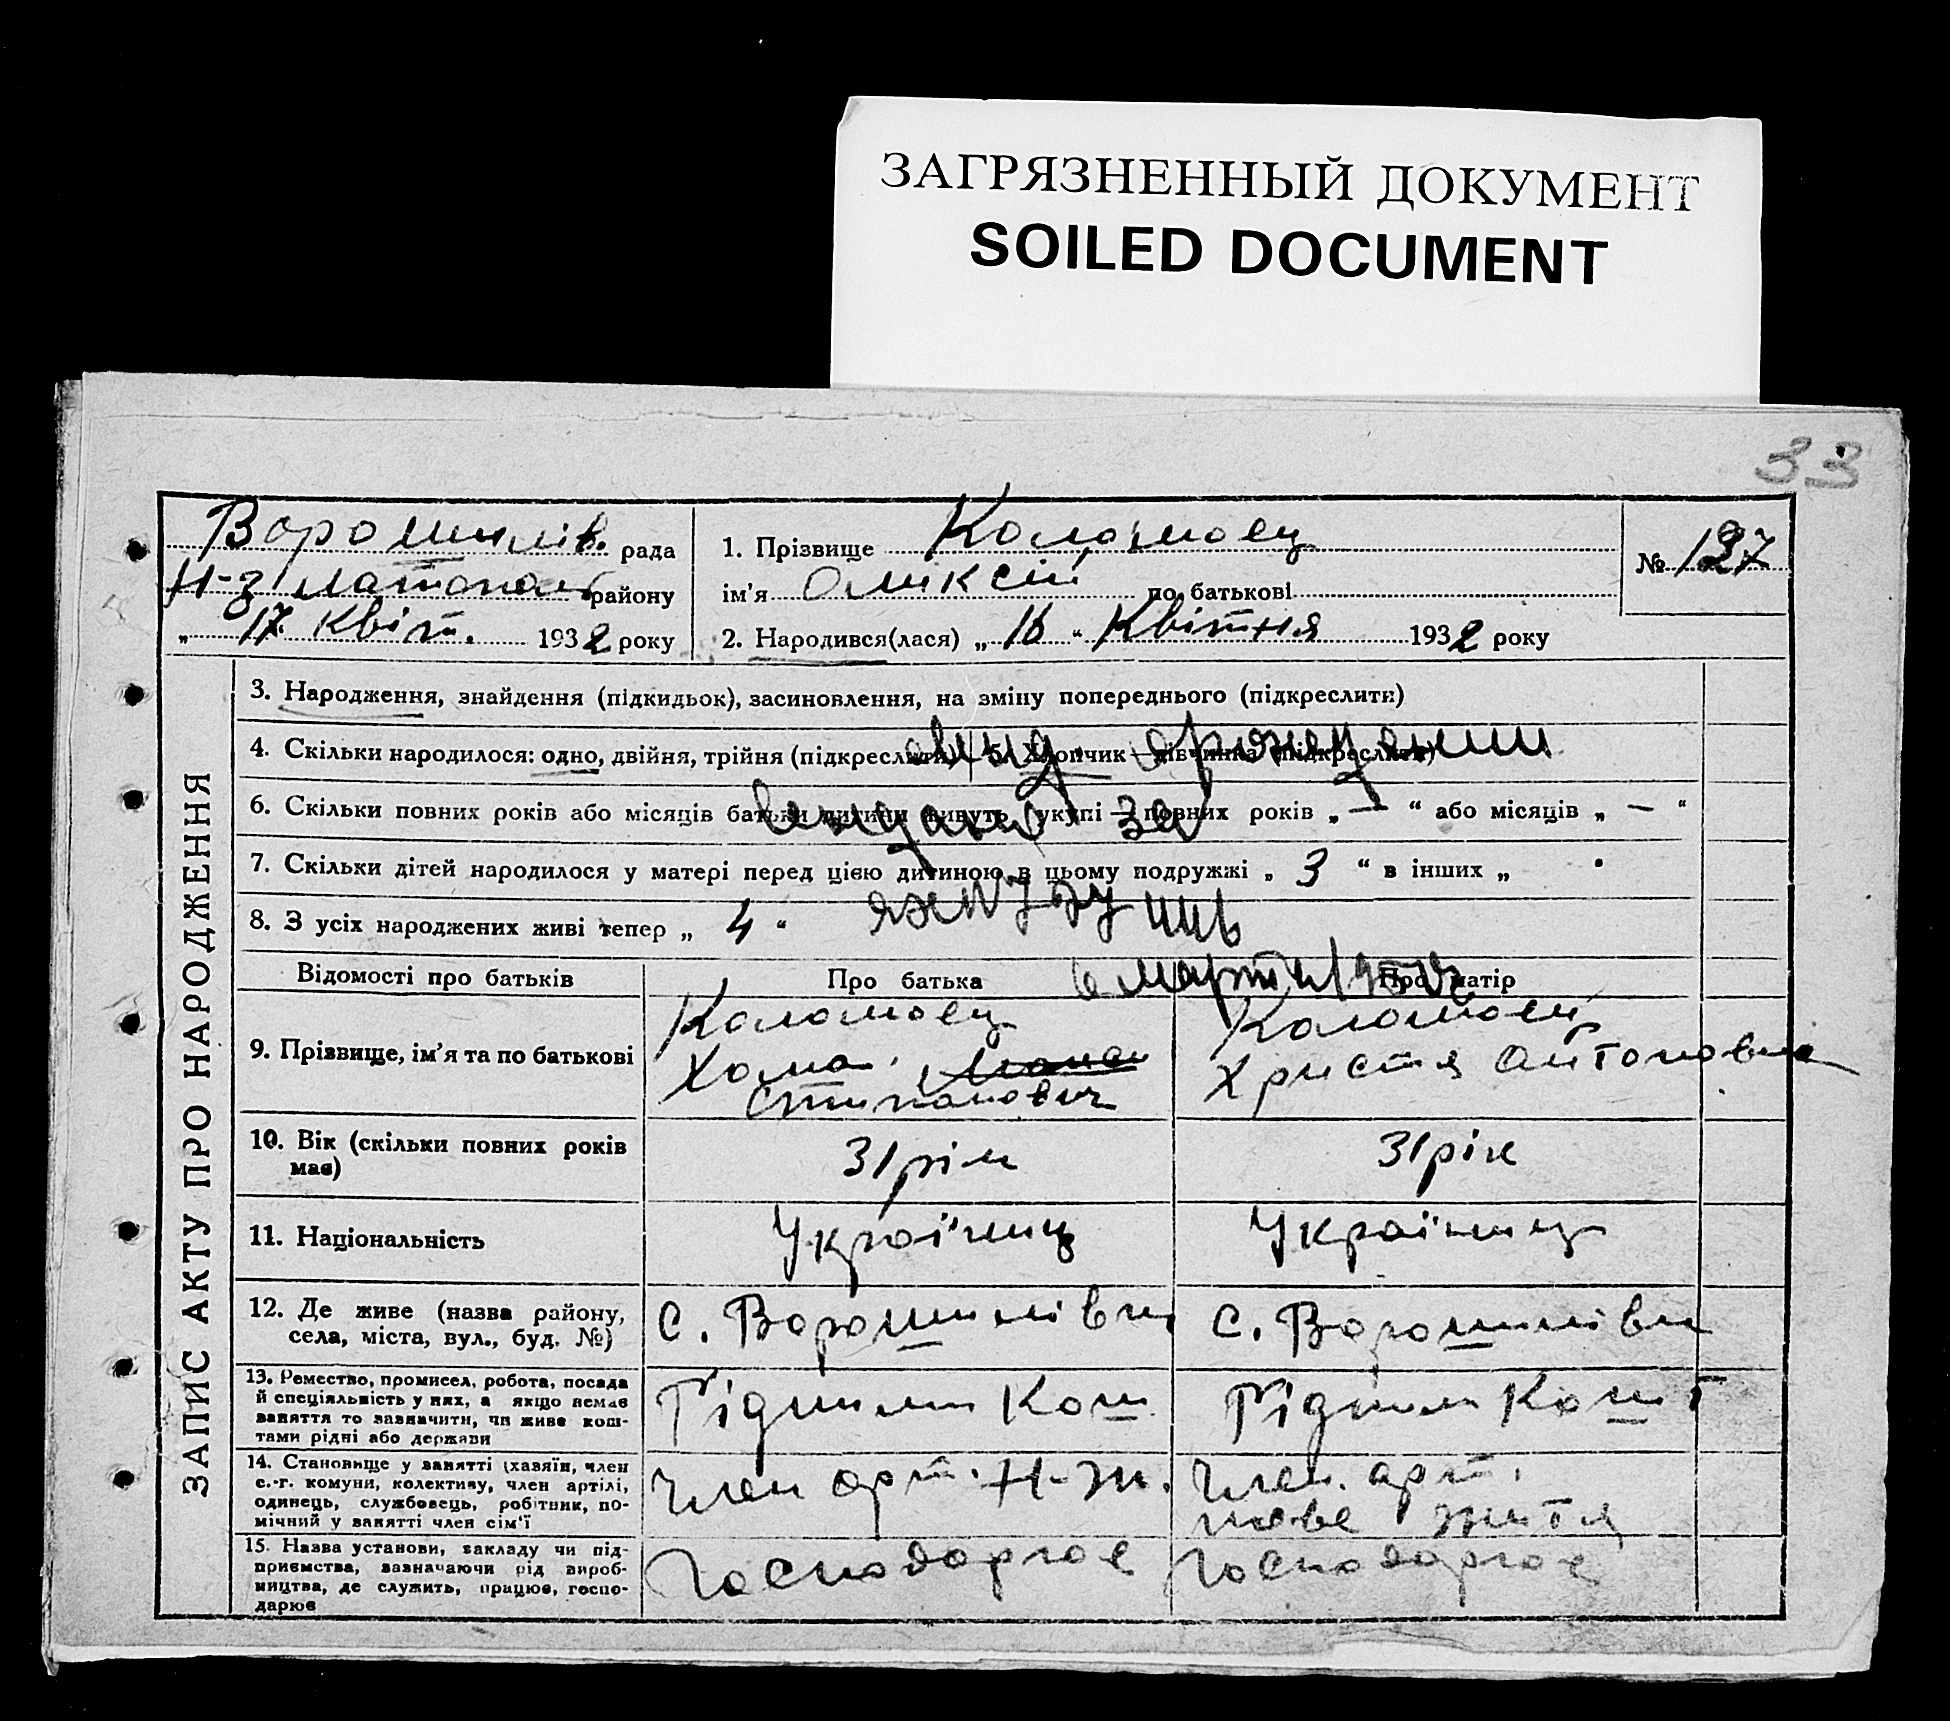 ЗАГРЯЗНЕННЫЙ ДОКУМЕНТ
SOILED DOCUMENT
33
Ворошилів. рада
Н-Златопол району
„ 17 Квіт. 1932 року
1. Прізвище Коломоец
ім'я Оликсій по батькові
2. Народився(лася) „ 16 “ Квітня 1932 року
№ 137
ЗАПИС АКТУ ПРО НАРОДЖЕННЯ
3. Народження, знайдення (підкидьок), засиновлення, на зміну попереднього (підкреслити)
4. Скільки народилося: одно, двійня, трійня (підкреслити) 5. Хлопчик — дівчинка (підкреслити)
свид. о рождении
6. Скільки повних років або місяців батьки дитини живуть укупі — повних років „ — “ або місяців „ — “
выдано за
7. Скільки дітей народилося у матері перед цією дитиною в цьому подружжі „ 3 “ в інших „
8. З усіх народжених живі тепер „ 4 “
Відомості про батьків Про батька Про матір
6 марта
9. Прізвище, ім'я та по батькові
Коломоец
Хома
Стипанович
Коломоец
Христя Антоновна
10. Вік (скільки повних років
має)
31 рік
31 рік
11. Національність
Україниц
Українец
12. Де живе (назва району,
села, міста, вул., буд. №)
с. Ворошилівки
с. Ворошилівки
13. Ремество, промисел, робота, посада
й спеціяльність у них, а якщо немає
заняття то зазначити, чи живе кош-
тами рідні або держави
Рідними Кош
Рідними Кошт
14. Становище у занятті (хазяїн, член
с.-г. комуни, колективу, член артілі,
одинець, службовець, робітник, по-
мічний у занятті член сім'ї
Член арт. Н-Ж.
Член. арт.
нове життя
15. Назва установи, закладу чи під-
приємства, зазначаючи рід вироб-
ництва, де служить, працює, госпо-
дарює
Господоргое
Господоргое